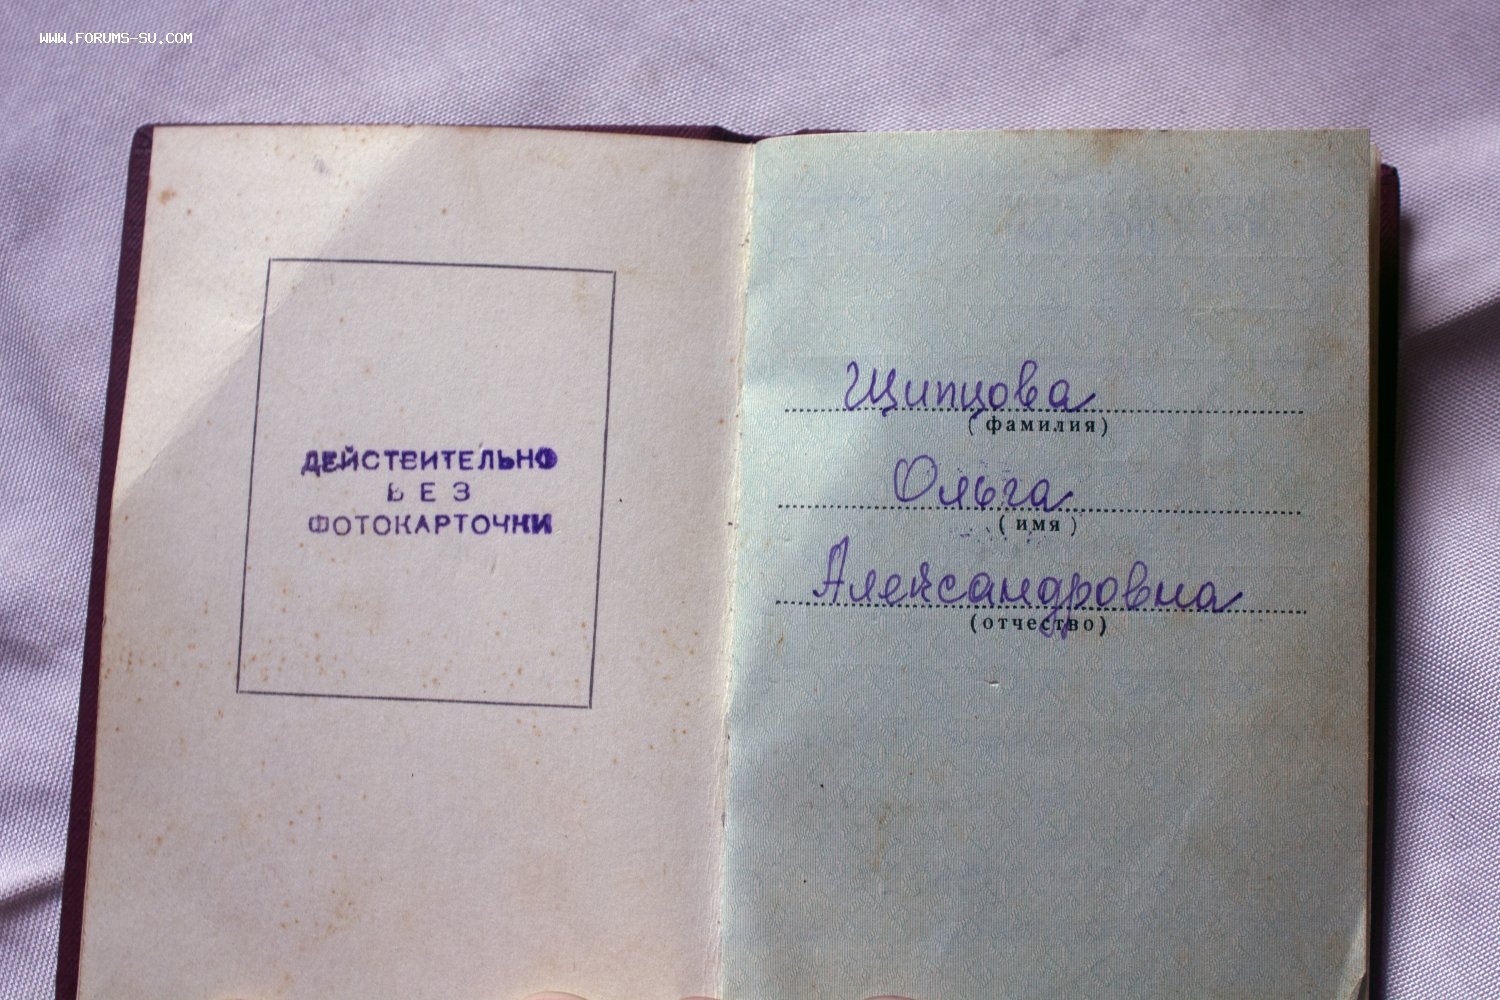 WWW.FORUMS-SU.COM
ДЕЙСТВИТЕЛЬНО
БЕЗ
ФОТОКАРТОЧКИ
Щипцова
(фамилия)
Ольга
(имя)
Александровна
(отчество)